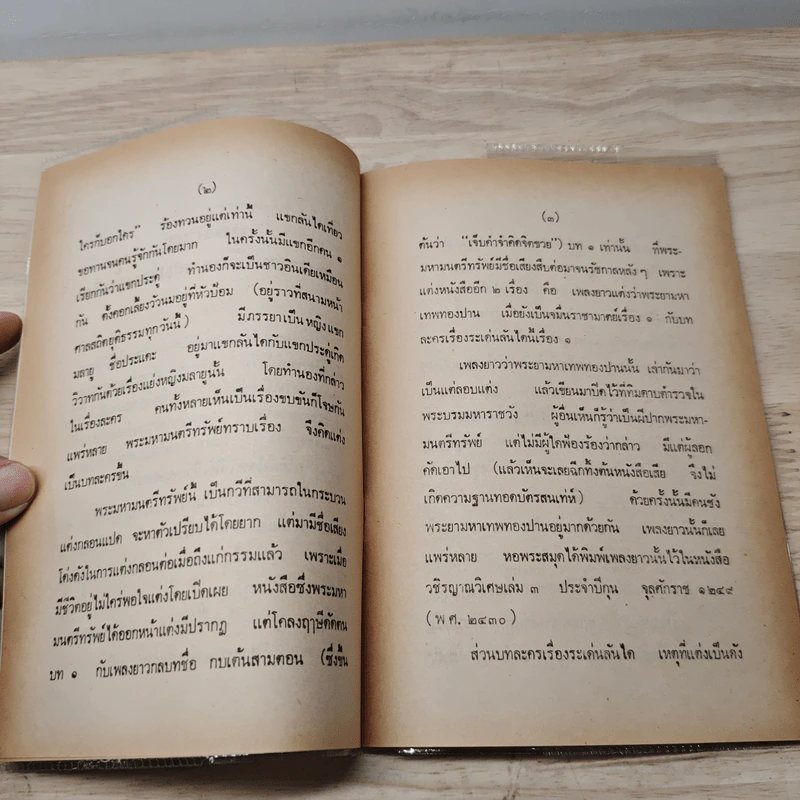 (๒)
ใครก็บอกใคร" ร้องทวนอยู่แต่เท่านี้ แขกลันไดเที่ยว
ขอทานจนคนรู้จักกันโดยมาก ในครั้งนั้นมีแขกอีกคน ๑
เรียกกันว่าแขกประดู่ ทำนองก็จะเป็นชาวอินเดียเหมือน
กัน ตั้งคอกเลี้ยงวัวนมอยู่ที่หัวป้อม (อยู่ราวที่สนามหน้า
ศาลสถิตยุติธรรมทุกวันนี้) มีภรรยาเป็นหญิงแขก
มลายู ชื่อประแดะ อยู่มาแขกลันไดกับแขกประดู่เกิด
วิวาทกันด้วยเรื่องแย่งหญิงมลายูนั้น โดยทำนองที่กล่าว
ในเรื่องละคร คนทั้งหลายเห็นเป็นเรื่องขบขันก็โจษกัน
แพร่หลาย พระมหามนตรีทรัพย์ทราบเรื่อง จึงคิดแต่ง
เป็นบทละครขึ้น
พระมหามนตรีทรัพย์นี้ เป็นกวีที่สามารถในกระบวน
แต่งกลอนแปด จะหาตัวเปรียบได้โดยยาก แต่มามีชื่อเสียง
โด่งดังในการแต่งกลอนต่อเมื่อถึงแก่กรรมแล้ว เพราะเมื่อ
มีชีวิตอยู่ไม่ใคร่พอใจแต่งโดยเปิดเผย หนังสือซึ่งพระมหา
มนตรีทรัพย์ได้ออกหน้าแต่งมีปรากฏ แต่โคลงฤๅษีดัดตน
บท ๑ กับเพลงยาวกลบทชื่อ กบเต้นสามตอน (ซึ่งขึ้น
(๓)
ต้นว่า "เจ็บคำจำคิดจิตขวย") บท ๑ เท่านั้น ที่พระ-
มหามนตรีทรัพย์มีชื่อเสียงสืบต่อมาจนรัชกาลหลังๆ เพราะ
แต่งหนังสืออีก ๒ เรื่อง คือ เพลงยาวแต่งว่าพระยามหา
เทพทองปาน เมื่อยังเป็นจมื่นราชามาตย์เรื่อง ๑ กับบท
ละครเรื่องระเด่นลันไดนี้เรื่อง ๑
เพลงยาวว่าพระยามหาเทพทองปานนั้น เล่ากันมาว่า
เป็นแต่ลอบแต่ง แล้วเขียนมาปิดไว้ที่ทิมดาบตำรวจใน
พระบรมมหาราชวัง ผู้อื่นเห็นก็รู้ว่าเป็นฝีปากพระมหา-
มนตรีทรัพย์ แต่ไม่มีผู้ใดฟ้องร้องว่ากล่าว มีแต่ผู้ลอก
คัดเอาไป (แล้วเห็นจะเลยฉีกทิ้งต้นหนังสือเสีย จึงไม่
เกิดความฐานทอดบัตรสนเท่ห์) ด้วยครั้งนั้นมีคนชัง
พระยามหาเทพทองปานอยู่มากด้วยกัน เพลงยาวนั้นก็เลย
แพร่หลาย หอพระสมุดได้พิมพ์เพลงยาวนั้นไว้ในหนังสือ
วชิรญาณวิเศษเล่ม ๓ ประจำปีกุน จุลศักราช ๑๒๔๙
(พ.ศ. ๒๔๓๐)
ส่วนบทละครเรื่องระเด่นลันได เหตุที่แต่งเป็นดัง